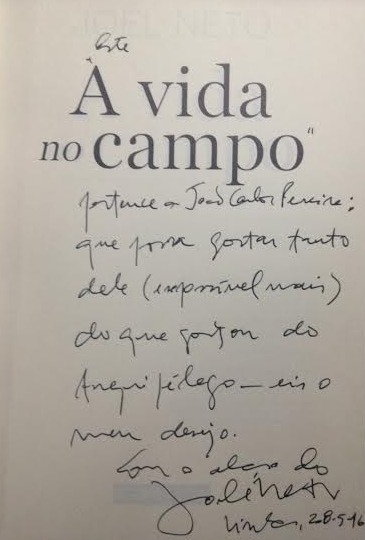 JOEL NETO
Este
"A vida
no campo"
pertence a João Carlos Pereira:
que possa gostar tanto
dele (impossível mais)
do que gostou do
Arquipélago — eis o
meu desejo.
Com o abraço do
Joel Neto
28-5-16